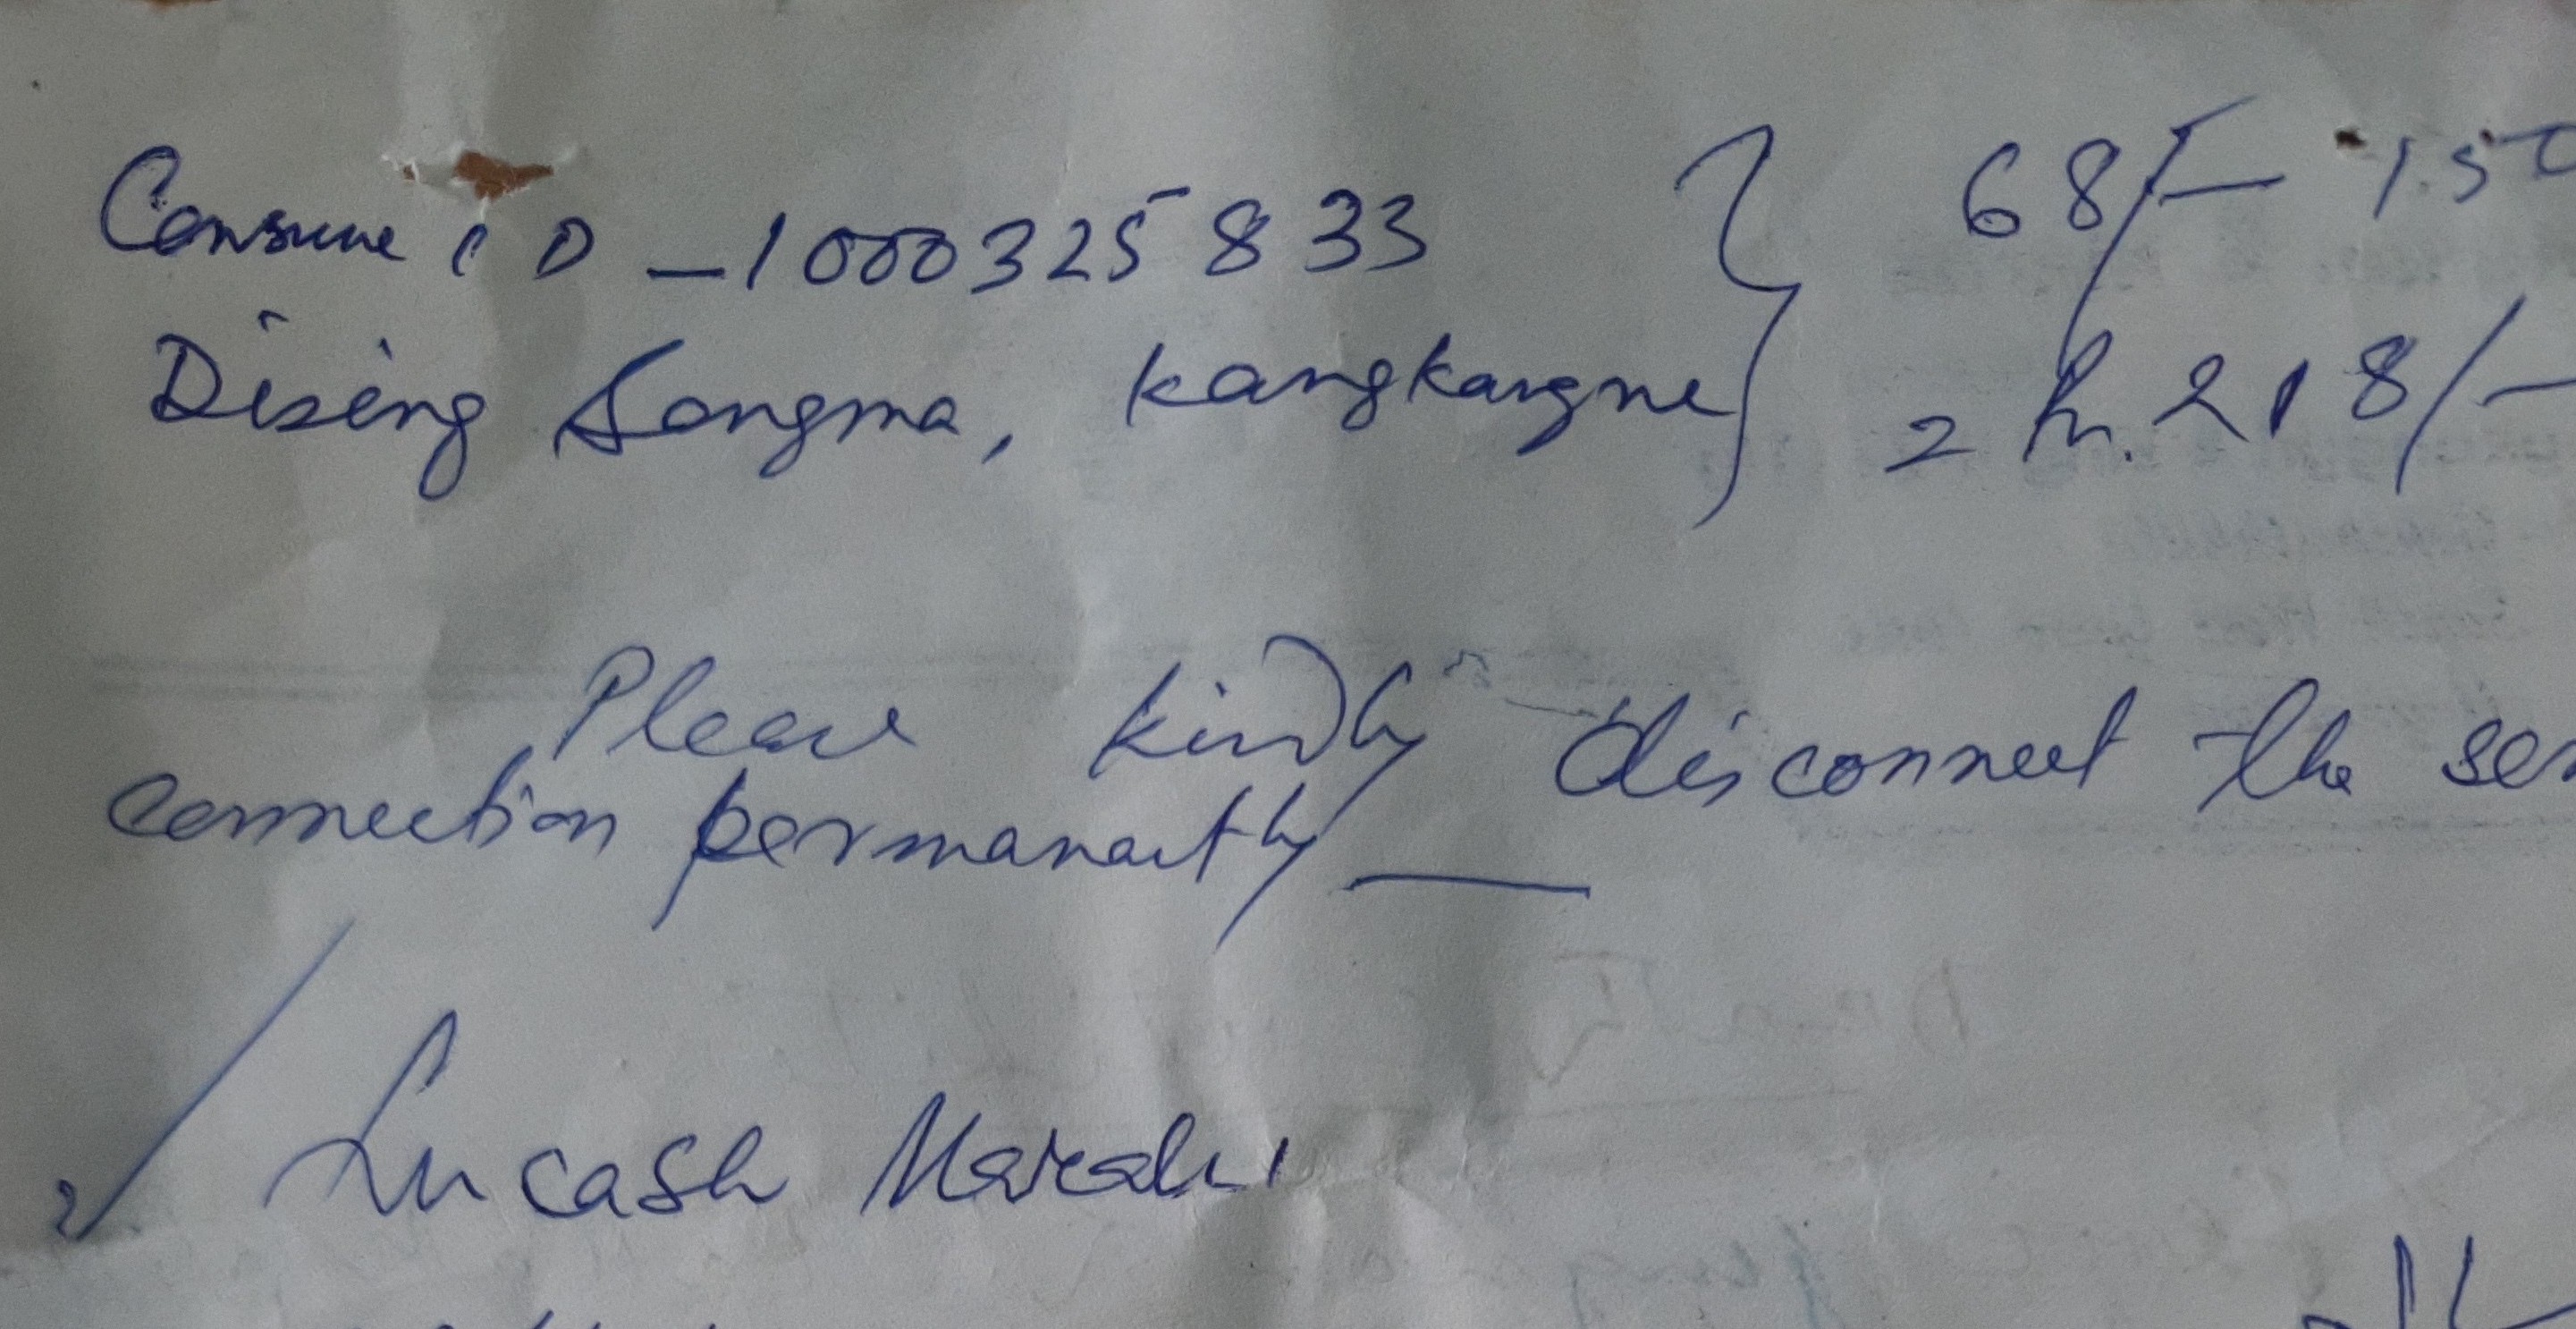 Consume ID - 1000325833 } 68/- 150
Dising Sangma, Kangkangne } = Rs. 218/-
Please kindly disconnect the ser
connection permanantly —
Lucash Marak